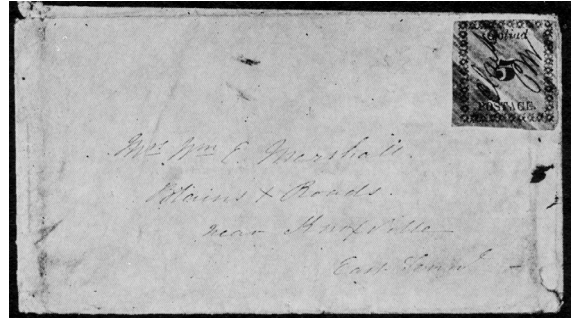 Paid
5
POSTAGE.
Mrs. Wm E. Marshall.
Blains + Roads.
near Knoxville
East Tenn